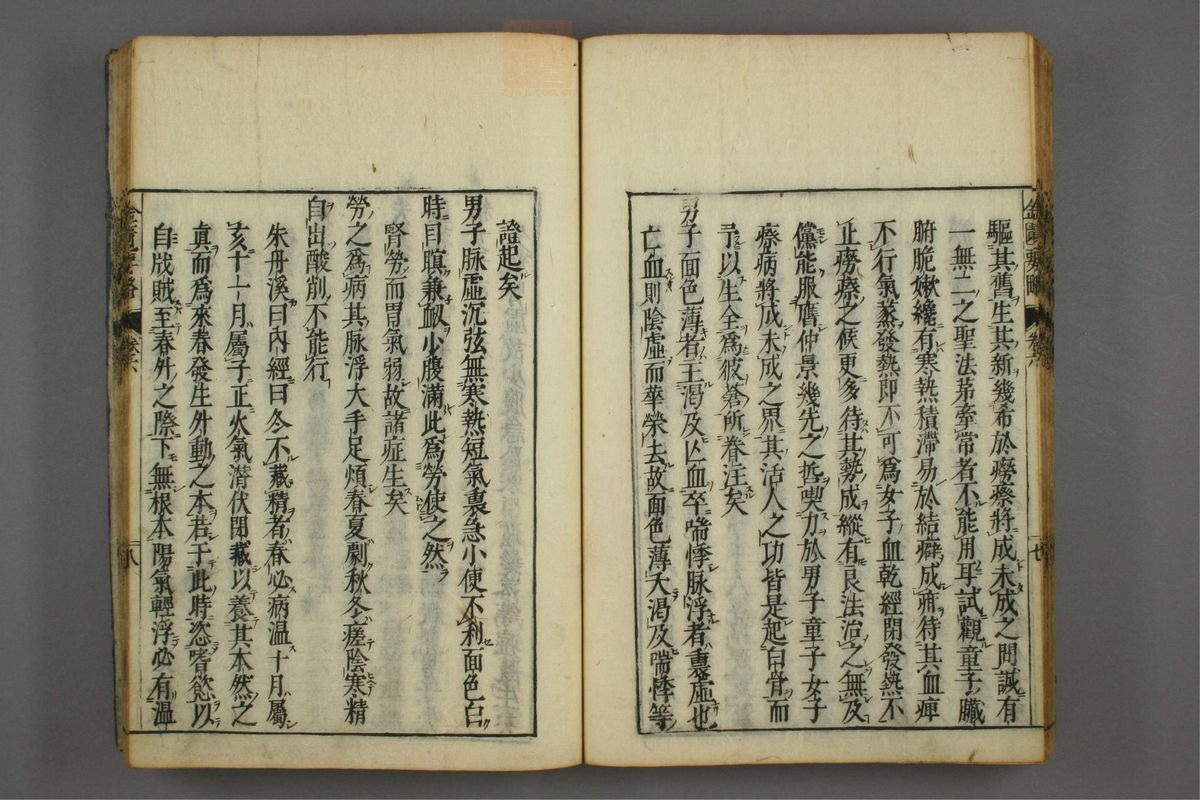 驅其舊生其新幾希於癆瘵將成未成之間誠有
一無二之聖法茅牽常者不能用耳試觀童子臟
腑脆嫰纔有寒熱積滯易於結癖成疳待其血痺
不行氣蒸發熱即不可為女子血乾經閉發熱不
止癆瘵之候更多待其勢成縱有良法治之無及
儻能服膺仲景幾先之哲喫力於男子童子女子
瘵病將成未成之界其活人之功皆是起白骨而
予以生全為彼蒼所眷注矣
男子面色薄者主渴及亡血卒喘悸脉浮者裏虛也
亡血則陰虛而華榮去故面色薄大渴及喘悸等
金匱要略 卷六 七
證起矣
男子脉虛沉弦無寒熱短氣裏急小便不利面色白
時目瞑兼衂少腹滿此為勞使之然
腎勞而胃氣弱故諸症生矣
勞之為病其脉浮大手足煩春夏劇秋冬瘥陰寒精
自出酸削不能行
朱丹溪曰內經曰冬不藏精者春必病温十月屬
亥十一月屬子正火氣潛伏閉藏以養其本然之
真而為來春發生外動之本若于此時恣嗜慾以
自戕賊至春升之際下無根本陽氣輕浮必有温
金匱要略 卷六 八